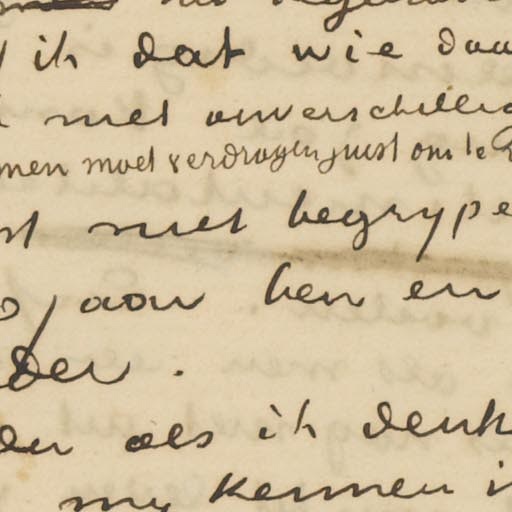 ik dat wie daa
met onverschillig
men moet verdragen juist om te
st niet begrype
aan hen en
der.
en als ik denk
my kennen i